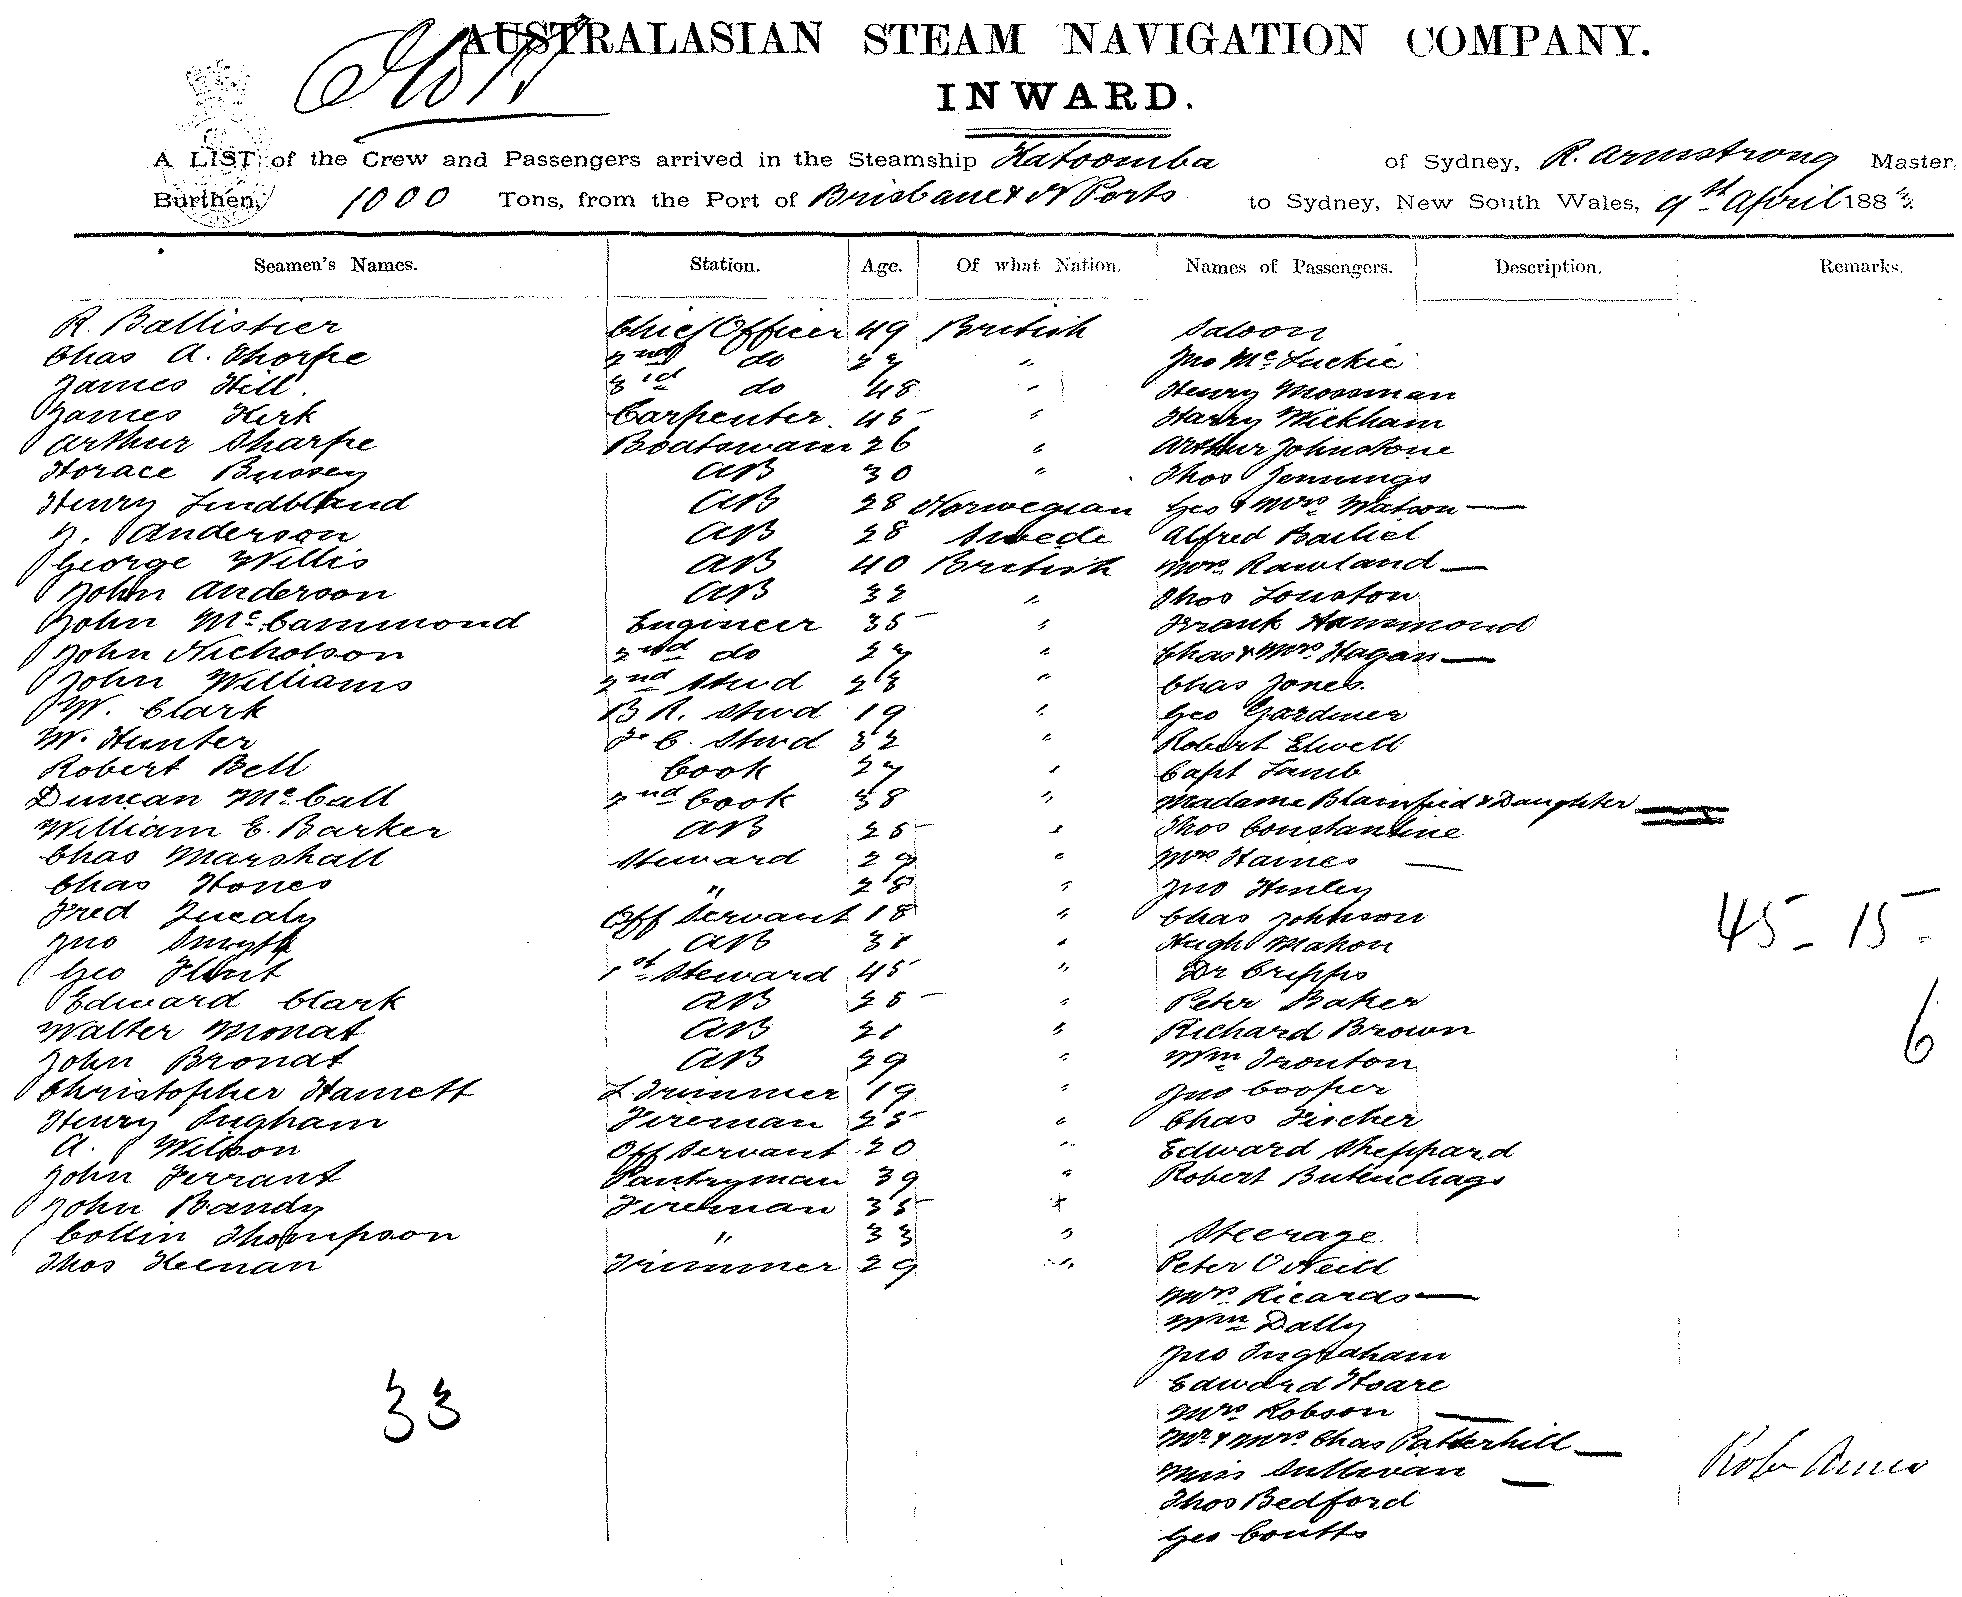 AUSTRALASIAN STEAM NAVIGATION COMPANY.
INWARD.
A LIST of the Crew and Passengers arrived in the Steamship Katoomba of Sydney, R. Armstrong Master
Burthen, 1000 Tons, from the Port of Brisbane & N Ports to Sydney, New South Wales, 9th April 1883
Seamen's Names. Station. Age. Of what Nation. Names of Passengers. Description. Remarks.
R. Ballistier Chief Officer 49 British Saloon
Chas A. Thorpe 2nd do 27 " Jno McLuckie
James Hill. 3rd do 48 " Henry Mossman
James Kirk Carpenter. 45 " Harry Wickham
Arthur Sharpe Boatswain 26 " Arthur Johnstone
Horace Bussey AB 30 " Thos Jennings
Henry Lindbland AB 28 Norwegian Geo & Mrs Watson
Anderson AB 28 Swede Alfred Bailiel
George Willis AB 40 British Mrs Rawland
John Anderson AB 32 " Thos Louston
John McCammond Engineer 35 " Frank Hammond
John Nicholson 2nd do 27 " Chas & Mrs Hagan
John Williams 2nd Stwd 23 " Chas Jones.
W. Clark B R. Stwd 19 " Geo Gardiner
W. Hunter F C. Stwd 32 " Robert Elwell
Robert Bell Cook 27 " Capt Lamb
Duncan McCall 2nd Cook 38 " Madame Blamfied & Daughter
William E. Barker AB 25 " Thos Constantine
Chas Marshall Steward 29 " Mrs Haines
Chas Hones " 28 " Jno Hinley
Fred Tuealy Off Servant 18 " Chas Johnson
Jno Smyth AB 31 " Hugh Mahon
45 - 15 -
Geo Flint 1st Steward 45 " Dr Cripps
Edward Clark AB 25 " Peter Baker
Walter Monat AB 21 " Richard Brown
6
John Bronat AB 29 " Wm Tronton
Christopher Hamett L Trimmer 19 " Jno Cooper
Henry Ingham Fireman 25 " Chas Fischer
A. Wilson Off Servant 20 " Edward Sheppard
John Ferrant Pantryman 39 " Robert
John Bandy Fireman 35 "
Collin Thompson " 33 " Steerage
Thos Keenan Trimmer 29 " Peter O Neill
Mrs Ricards
Wm Dally
Jno Ingraham
Edward Hoare
33
Mrs Robson
Mr & Mrs Chas Patterhill
Miss Sullivan
Thos Bedford
Geo Coutts